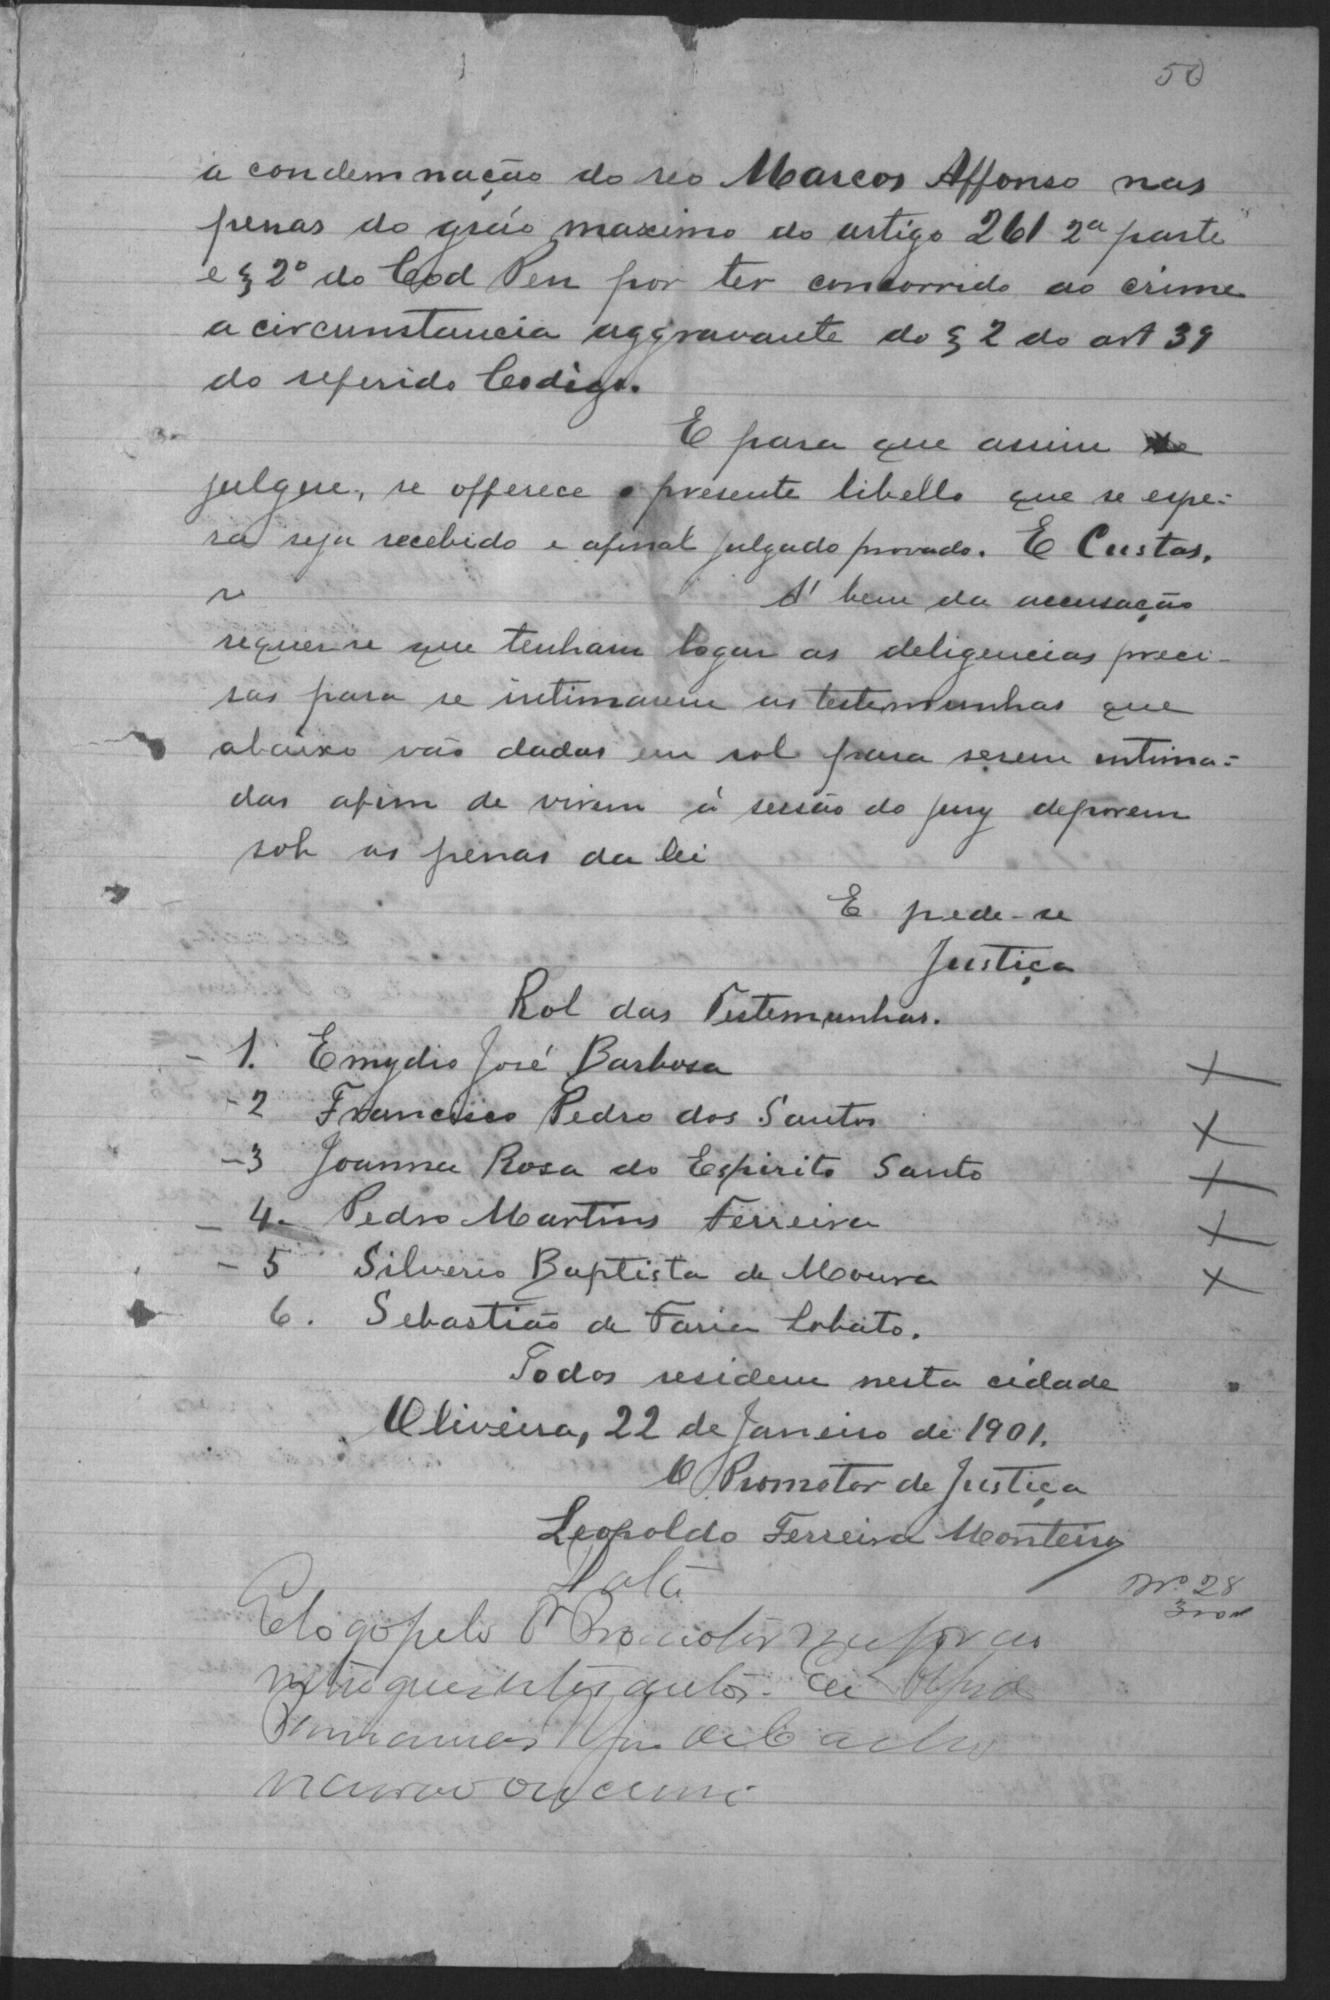 50
a condemnação do réo Marcos Affonso nas
penas do gráo maximo do artigo 261 2ª parte
e § 2º do Cod Pen por ter concorrido ao crime
a circunstancia aggravante do § 2 do art 39
do referido Codigo.
E para que assim se
julgue, se offerece o presente libello que se espe-
ra seja recebido e afinal julgado provado. E Custas.
A' bem da accusação
requer-se que tenham logar as deligencias preci-
sas para se intimarem as testemunhas que
abaixo vão dadas em rol para serem intima-
das afim de virem á sessão do jury deporem
sob as penas da lei
E pede-se
Justiça
Rol das Testemunhas.
1. Emydio José Barbosa
2 Francisco Pedro dos Santos
3 Joanna Rosa do Espirito Santo
4. Pedro Martins Ferreira
5 Silverio Baptista de Moura
6. Sebastião de Faria Lobato.
Todos residem nesta cidade
Oliveira, 22 de Janeiro de 1901.
O Promotor de Justiça
Leopoldo Ferreira Monteiro
Data
Nº 28
E logo pelo Dr Promotor me forão
entregues estes autos. Eu